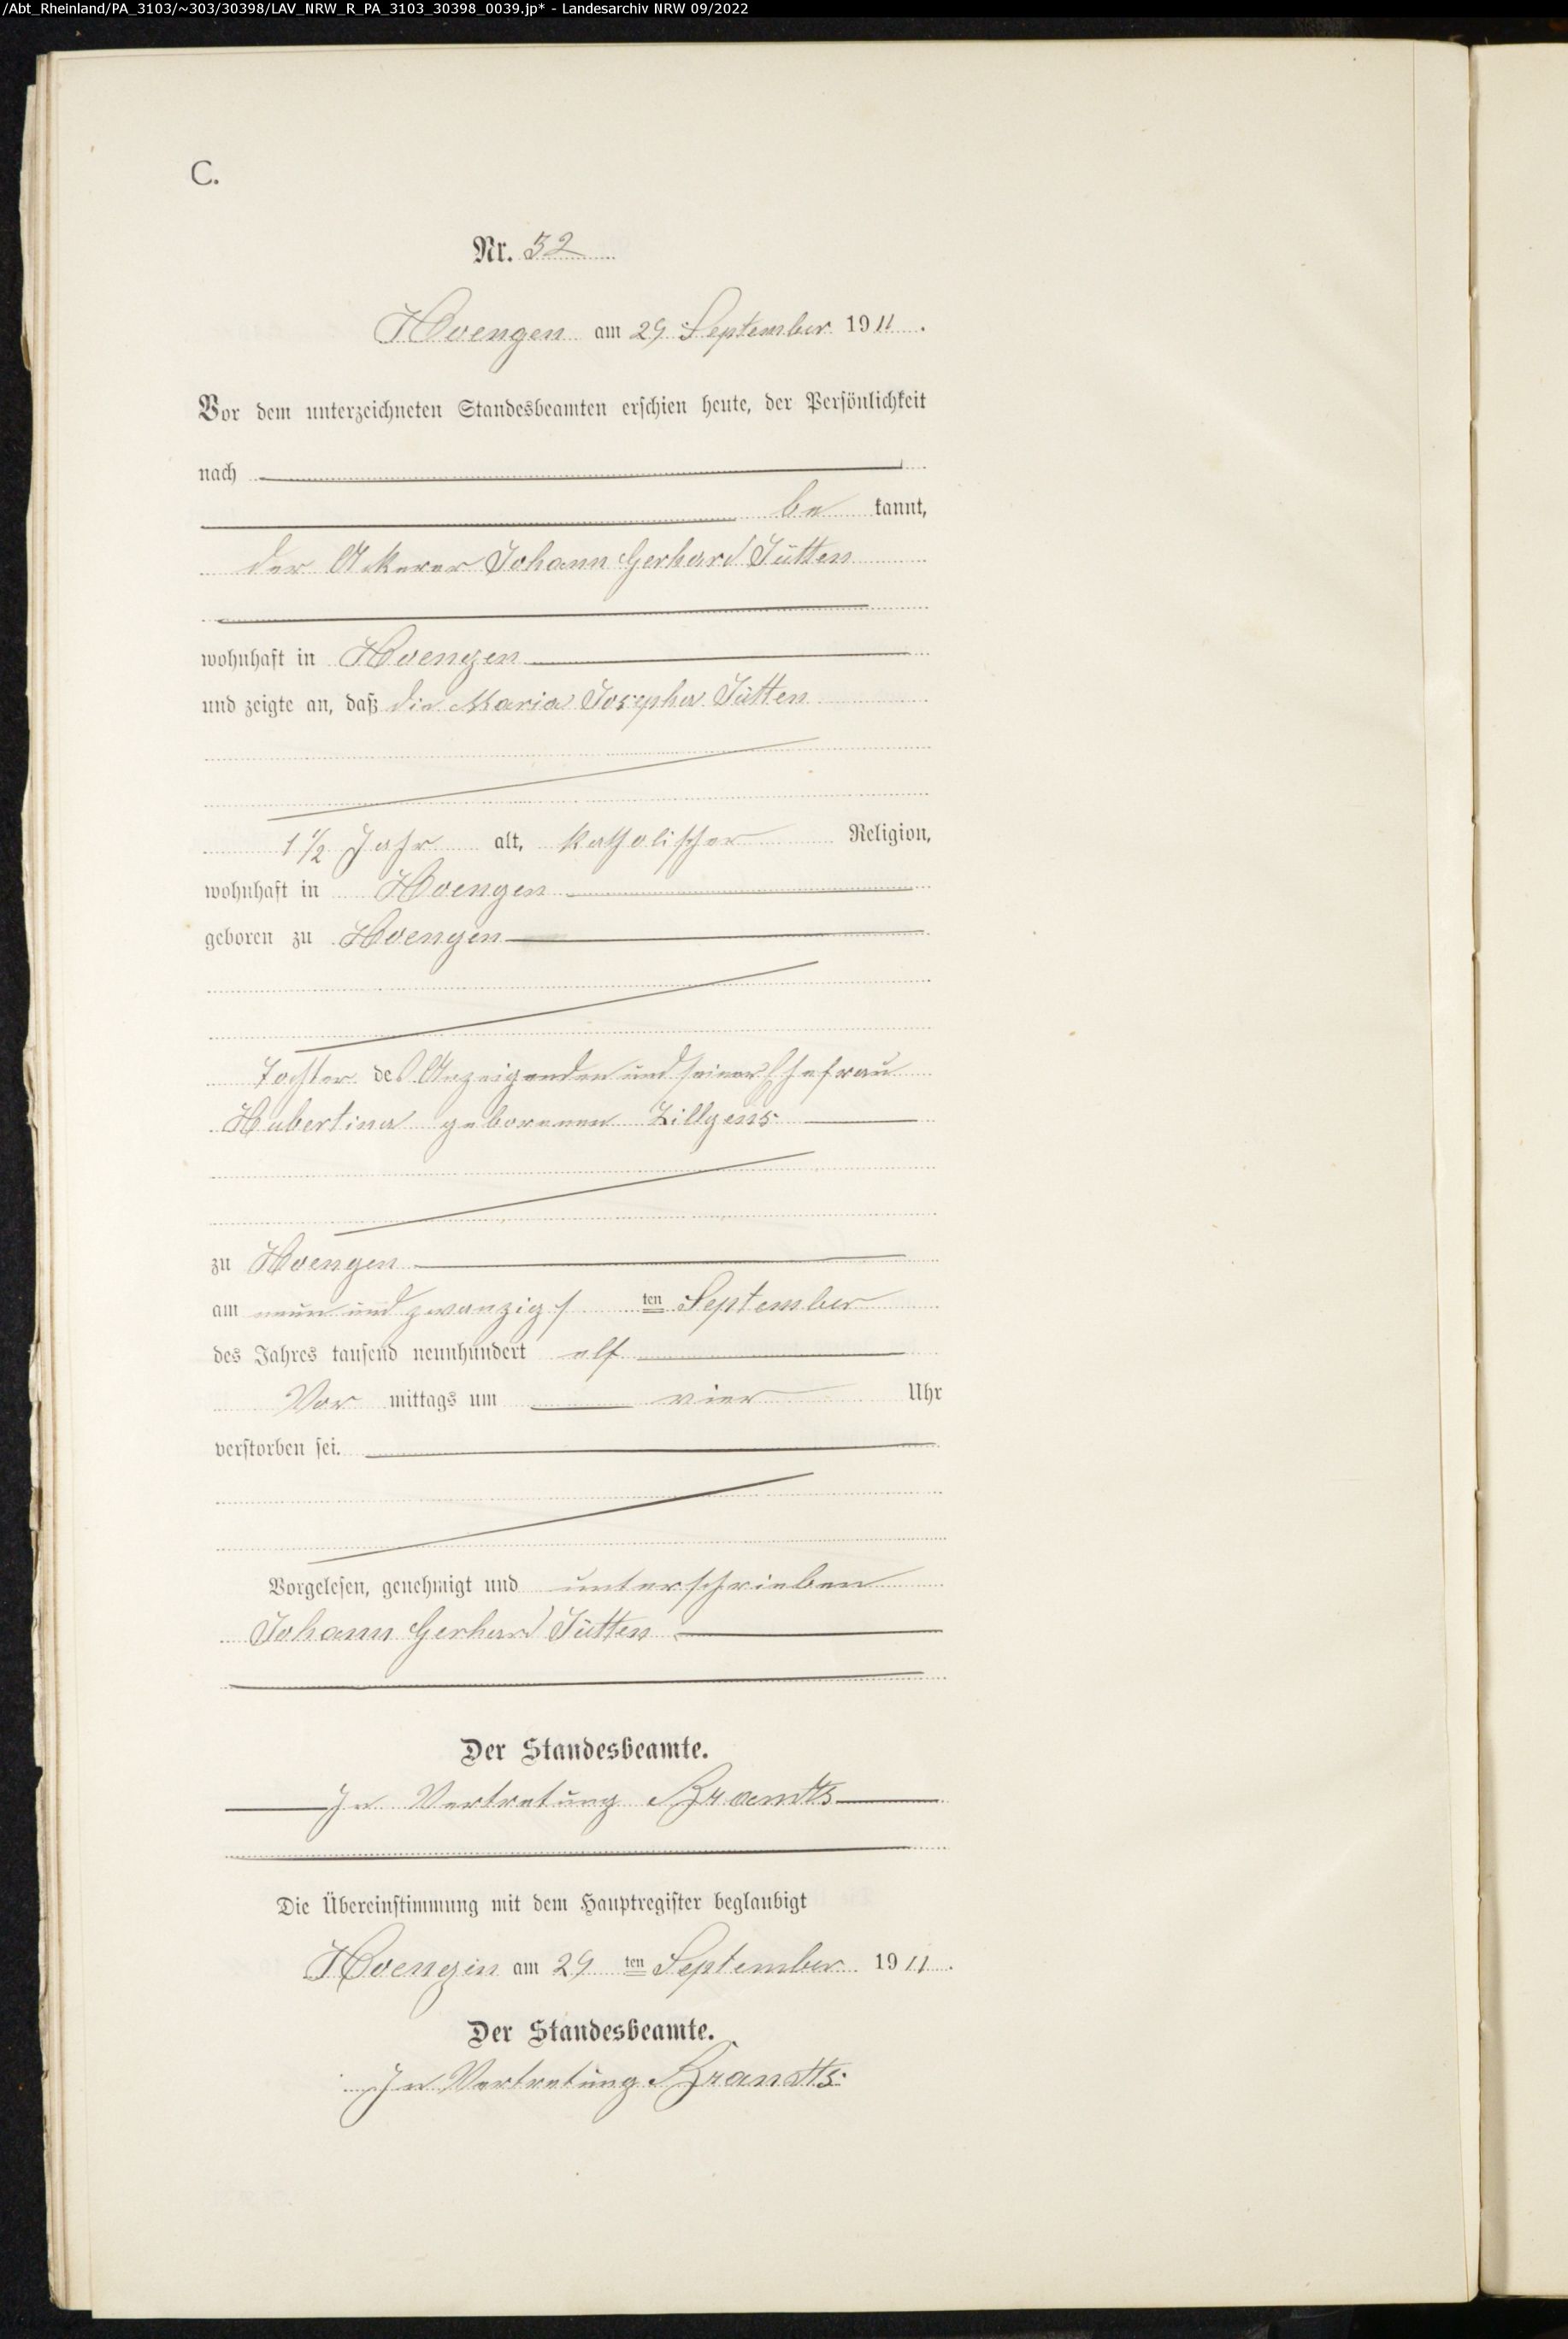 /Abt_Rheinland/PA_3103/~303/30398/LAV_NRW_R_PA_3103_30398_0039.jp* - Landesarchiv NRW 09/2022
C.
Nr. 32
Hoengen am 29 September 1911.
Vor dem unterzeichneten Standesbeamten erschien heute, der Persönlichkeit
nach
be kannt,
der Ackerer Johann Gerhard Jütten
wohnhaft in Hoengen
und zeigte an, daß die Maria Josepha Jütten
1 1/2 Jahr alt, katholischer Religion,
wohnhaft in Hoengen
geboren zu Hoengen
Tochter des Anzeigenden und seiner Ehefrau
Hubertina geborenen Zillgens
zu Hoengen
am neun und zwanzigsten September
des Jahres tausend neunhundert elf
Vor mittags um vier Uhr
verstorben sei.
Vorgelesen, genehmigt und unterschrieben
Johann Gerhard Jütten
Der Standesbeamte.
In Vertretung Brandts
Die Übereinstimmung mit dem Hauptregister beglaubigt
Hoengen am 29 ten September 1911.
Der Standesbeamte.
In Vertretung Brandts